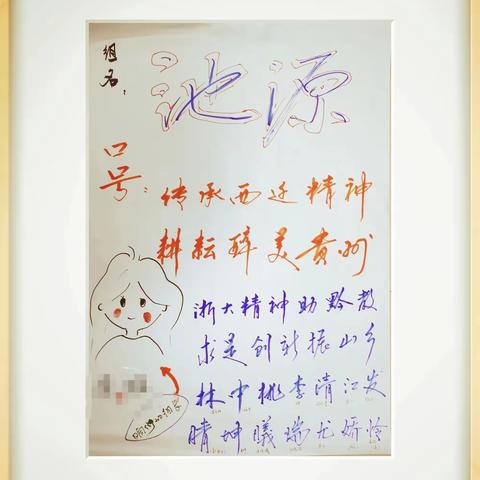 组名：
池源
口号：
传承西迁精神
耕耘醉美贵州
浙大精神助黔教
求是创新振山乡
林中桃李清江发
晴坤曦瑞尤娇怜